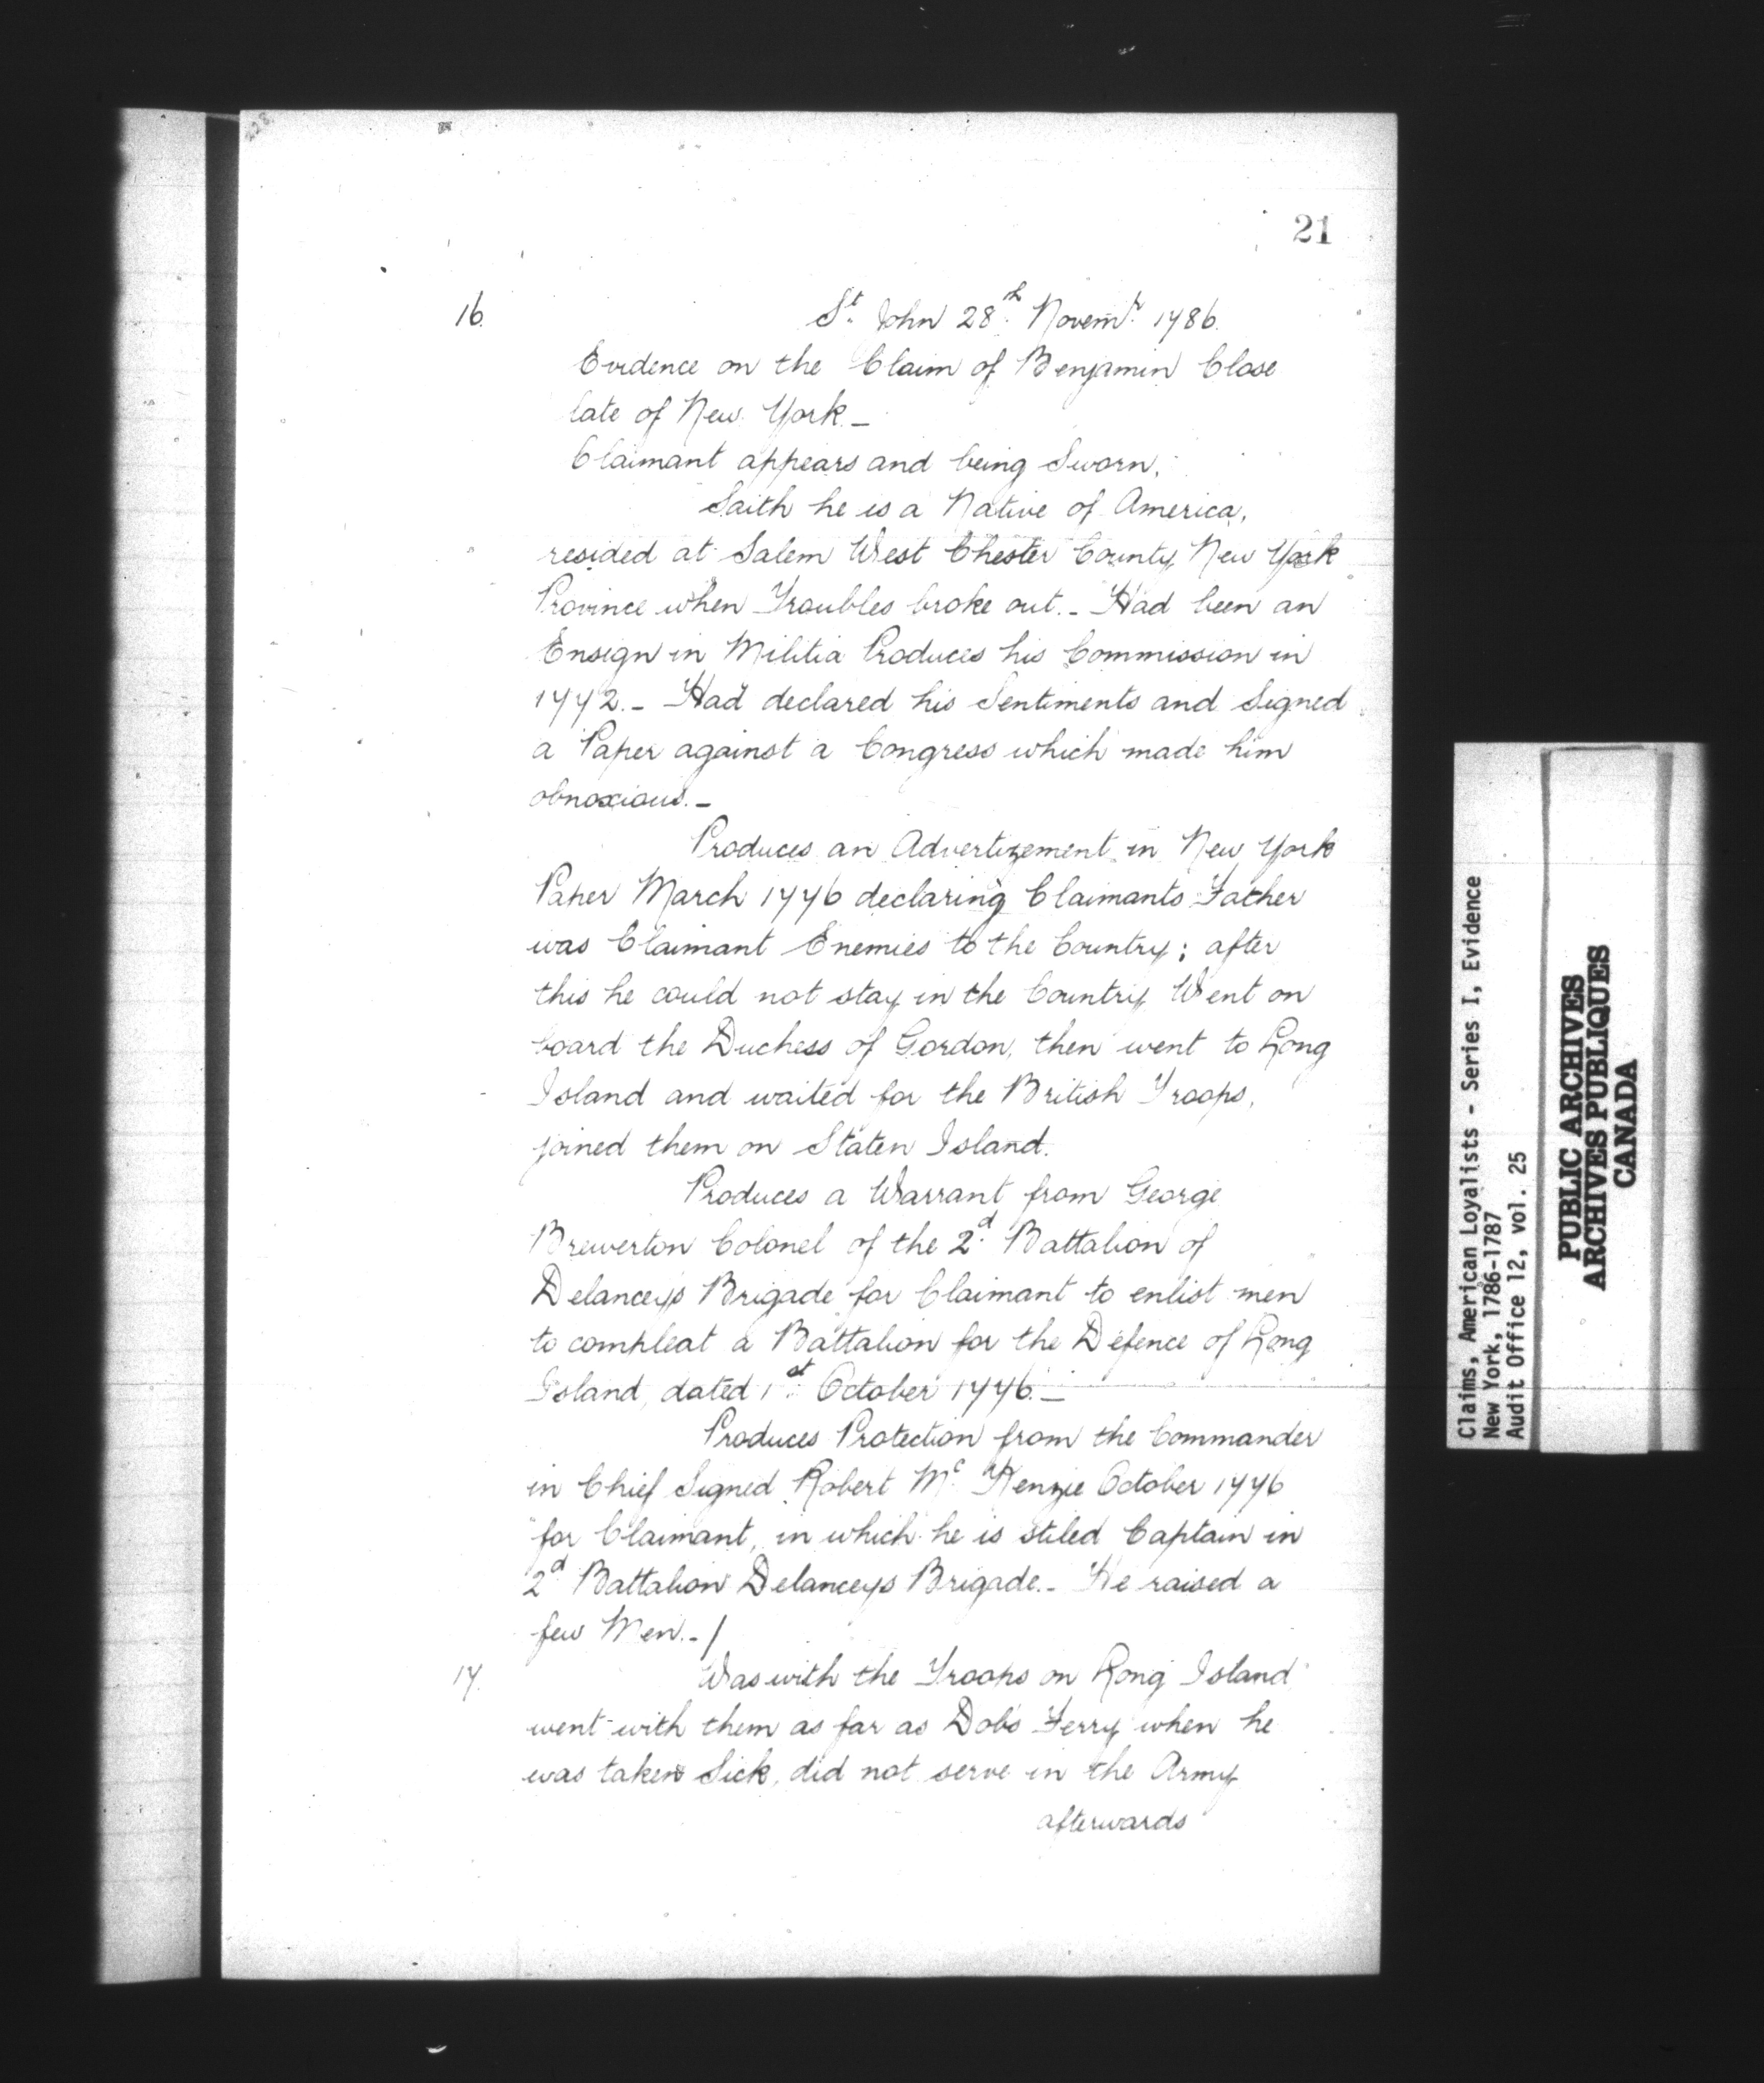 21
16.
St. John 28th. Novemr. 1786.
Evidence on the Claim of Benjamin Close
late of New York._
Claimant appears and being Sworn.
Saith he is a Native of America,
resided at Salem West Chester County New York
Province when Troubles broke out._ Had been an
Ensign in Militia Produces his Commission in
1772._ Had declared his Sentiments and Signed
a Paper against a Congress which made him
obnoxious._
Produces an Advertizement in New York
Paper March 1776 declaring Claimants Father
was Claimant Enemies to the Country; after
this he could not stay in the Country Went on
board the Duchess of Gordon, then went to Long
Island and waited for the British Troops,
joined them on Staten Island.
Produces a Warrant from George
Brewerton Colonel of the 2d. Battalion of
Delanceys Brigade for Claimant to enlist men
to compleat a Battalion for the Defence of Long
Island, dated 1st. October 1776._
Produces Protection from the Commander
in Chief Signed Robert Mc. Kenzie October 1776
for Claimant, in which he is stiled Captain in
2d Battalion Delanceys Brigade._ He raised a
few Men._/
17.
Was with the Troops on Long Island
went with them as far as Dobs Ferry when he
was taken Sick, did not serve in the Army
afterwards
Claims, American Loyalists - Series I, Evidence
New York, 1786-1787
Audit Office 12, vol. 25
PUBLIC ARCHIVES
ARCHIVES PUBLIQUES
CANADA